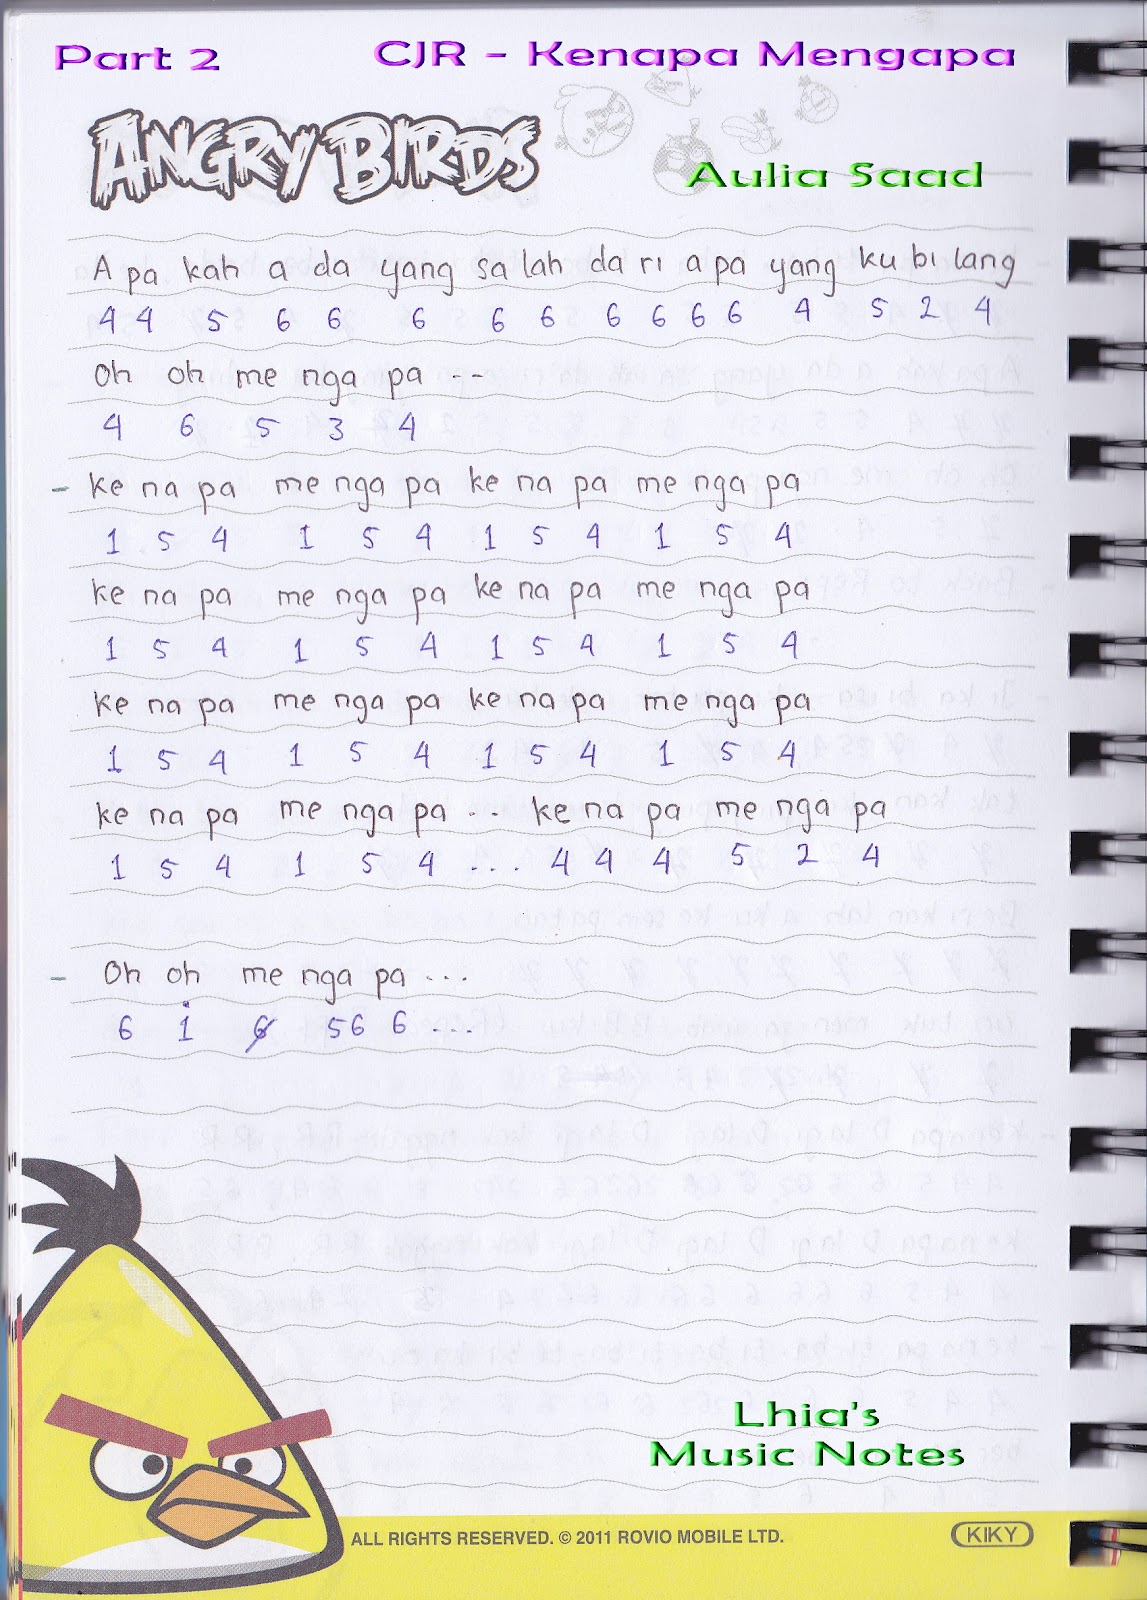 Part 2 CJR - Kenapa Mengapa
ANGRY BIRDS
Aulia Saad
A pa kah a da yang sa lah da ri a pa yang ku bi lang
4 4 5 6 6 6 6 6 6 6 6 6 4 5 2 4
Oh oh me nga pa ...
4 6 5 3 4
- ke na pa me nga pa ke na pa me nga pa
1 5 4 1 5 4 1 5 4 1 5 4
ke na pa me nga pa ke na pa me nga pa
1 5 4 1 5 4 1 5 4 1 5 4
ke na pa me nga pa ke na pa me nga pa
1 5 4 1 5 4 1 5 4 1 5 4
ke na pa me nga pa ... ke na pa me nga pa
1 5 4 1 5 4 ... 4 4 4 5 2 4
- Oh oh me nga pa ...
6 1̇ 6̸ 56 6 ...
Lhia's
Music Notes
ALL RIGHTS RESERVED. © 2011 ROVIO MOBILE LTD. KIKY